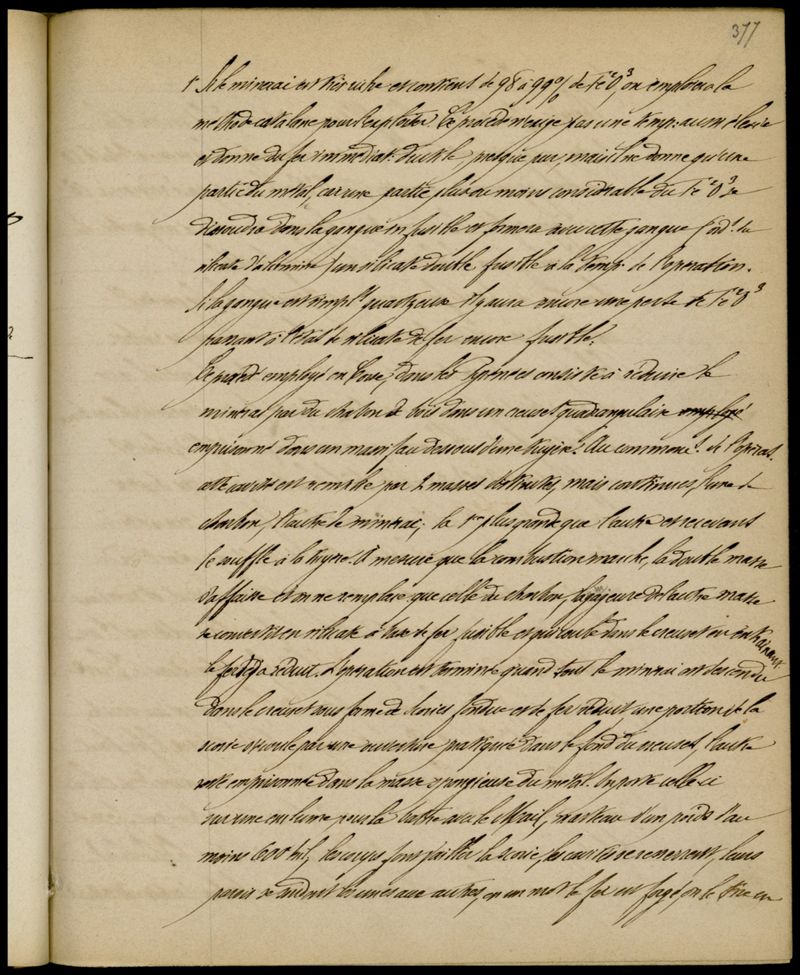 377
1° Si le minerai est très riche et contient de 98 à 99% de Fe²O³, on emploiera la
méthode catalane pour l'exploiter. Ce procédé n'exige pas une temp. aussi élevée
et donne du fer immédiat. ductile, presque pur, mais il ne donne qu'une
partie du métal, car une partie plus ou moins considérable du Fe²O³ se
dissoudra dans la gangue infusible et formera avec cette gangue (ord.t du
silicate d'alumine) un silicate double fusible à la temp. de l'opération.
Si la gangue est simpl.t quartzeuse il y aura encore une perte de Fe²O³
passant à l'état de silicate de fer encore fusible.
Ce procédé employé en Corse, dans les Pyrénées consiste à réduire le
minerai par du charbon de bois dans un creuset quadrangulaire employé
emprisonné dans un massif au dessous d'une tuyère. Au commenc.t de l'opérat.
cette cavité est remplie par 2 masses distinctes, mais continues, l'une de
charbon, l'autre de minerai; la 1re plus grande que l'autre et recevant
le souffle à la tuyère. A mesure que la combustion marche, la double masse
s'affaisse et on ne remplace que celle de charbon, la gangue de l'autre masse
se convertit en silicate à base de fer fusible et qui coule dans le creuset en entrainant
le fer déjà réduit. L'opération est terminée quand tout le minerai est descendu
dans le creuset sous forme de scories fondues et de fer réduit une portion de la
scorie s'écoule par une ouverture pratiquée dans le fond du creuset, l'autre
reste emprisonnée dans la masse spongieuse du métal. On porte celle-ci
sur une enclume pour la battre avec le Mail, marteau d'un poids d'au
moins 600 kil, les coups font jaillir la scorie, les cavités se resserrent, leurs
parois se soudent les unes aux autres, en un mot le fer est forgé, on le tire en